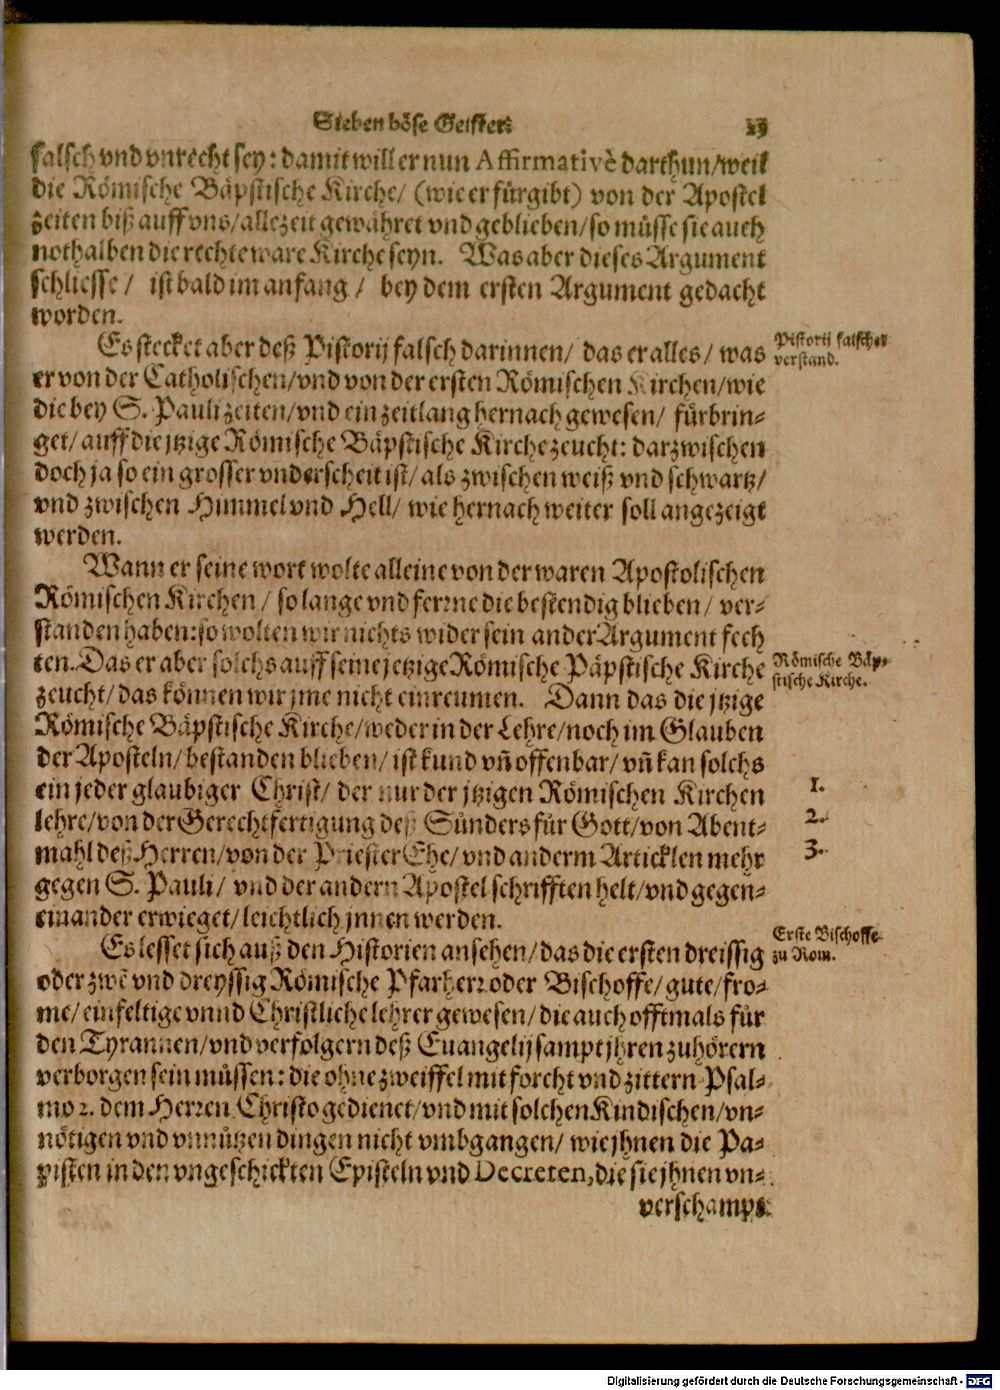 Sieben böse Geister.
falsch vnd vnrecht sey: damit will er nun Affirmativè darthun/weil
die Römische Bäpstische Kirche/ (wie er fürgibt) von der Apostel
zeiten biß auff vns/allezeit gewähret vnd geblieben/so müsse sie auch
nothalben die rechte ware Kirche seyn. Was aber dieses Argument
schliesse/ ist bald im anfang/ bey dem ersten Argument gedacht
worden.
Es stecket aber deß Pistorij falsch darinnen/ das er alles/ was
Pistorij falscher
verstand.
er von der Catholischen/vnd von der ersten Römischen Kirchen/wie
die bey S. Pauli zeiten/vnd ein zeitlang hernach gewesen/ fürbrin-
get/auff die jtzige Römische Bäpstische Kirche zeucht: darzwischen
doch ja so ein grosser vnderscheit ist/als zwischen weiß vnd schwartz/
vnd zwischen Himmel vnd Hell/ wie hernach weiter soll angezeigt
werden.
Wann er seine wort wolte alleine von der waren Apostolischen
Römischen Kirchen/ so lange vnd ferrne die bestendig blieben/ ver-
standen haben: so wolten wir nichts wider sein ander Argument fech
ten. Das er aber solchs auff seine jetzige Römische Päpstische Kirche
Römische Bäp-
stische Kirche.
zeucht/das können wir jme nicht einreumen. Dann das die jtzige
Römische Bäpstische Kirche/weder in der Lehre/noch im Glauben
der Aposteln/bestanden blieben/ist kund vñ offenbar/vñ kan solchs
ein jeder glaubiger Christ/ der nur der jtzigen Römischen Kirchen
1.
lehre/von der Gerechtfertigung deß Sünders für Gott/von Abent-
2.
mahl deß Herren/von der Priester Ehe/vnd anderm Articklen mehr
3.
gegen S. Pauli/ vnd der andern Apostel schrifften helt/vnd gegen-
einander erwieget/leichtlich jnnen werden.
Es lesset sich auß den Historien ansehen/das die ersten dreissig
Erste Bischoffe
zu Rom.
oder zwē vnd dreyssig Römische Pfarherr oder Bischoffe/gute/fro-
me/einfeltige vnnd Christliche lehrer gewesen/die auch offtmals für
den Tyrannen/vnd verfolgern deß Euangelij sampt jhren zuhörern
verborgen sein müssen: die ohne zweiffel mit forcht vnd zittern Psal-
mo 2. dem Herren Christo gedienet/vnd mit solchen Kindischen/vn-
nötigen vnd vnnützen dingen nicht vmbgangen/ wie jhnen die Pa-
pisten in den vngeschickten Episteln vnd Decreten, die sie jhnen vn-
verschampt
Digitalisierung gefördert durch die Deutsche Forschungsgemeinschaft - DFG